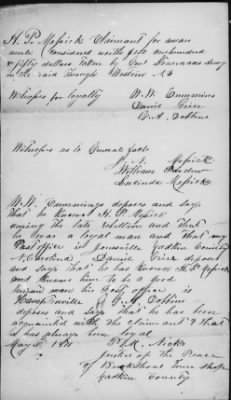 H. P. Messick Claimant for one
mule considered worth full one hundred
& fifty dollars taken by Genl Stonemans Army
in the raid through Western N C
Witnesses for loyalty W. W. Cummins
Daniel
G. A. Dobbins
Witnesses as to General facts
J. N. Messick
William
Lucinda Messick
W. W. Cummings deposes and say
that he knows H. P. Messick
during the late rebellion and that
he was a loyal man and that my
Post office is Jonesville Yadkin County
N. Carolina, Daniel deposes
and says that he has known H P Messick
and knows him to be a good
union man his post office is
Hamptonville G. A. Dobbins
deposes and say that he has been
acquainted with the claimant & that
he has always been loyal
May 1871 Nicks
Justice of the Peace
of Buck Shoal Township
Yadkin County